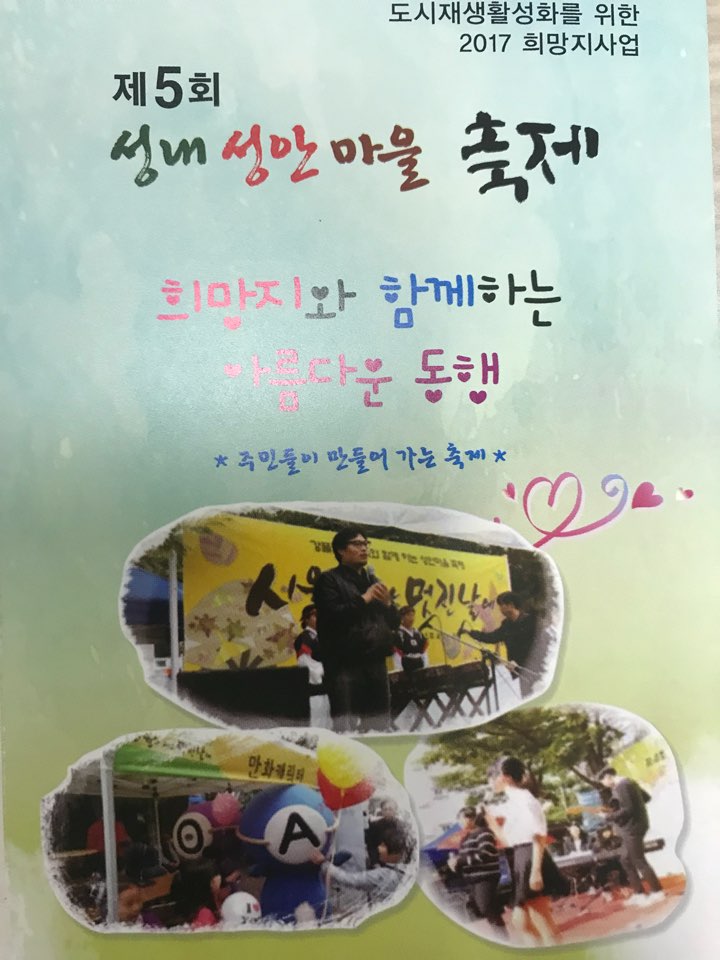 도시재생활성화를 위한
2017 희망지사업
제5회
성내 성안마을 축제
희망지와 함께하는
아름다운 동행
* 주민들이 만들어 가는 축제 *
함께 하는 성안마을 축제
멋진날에
만화캐릭터
A